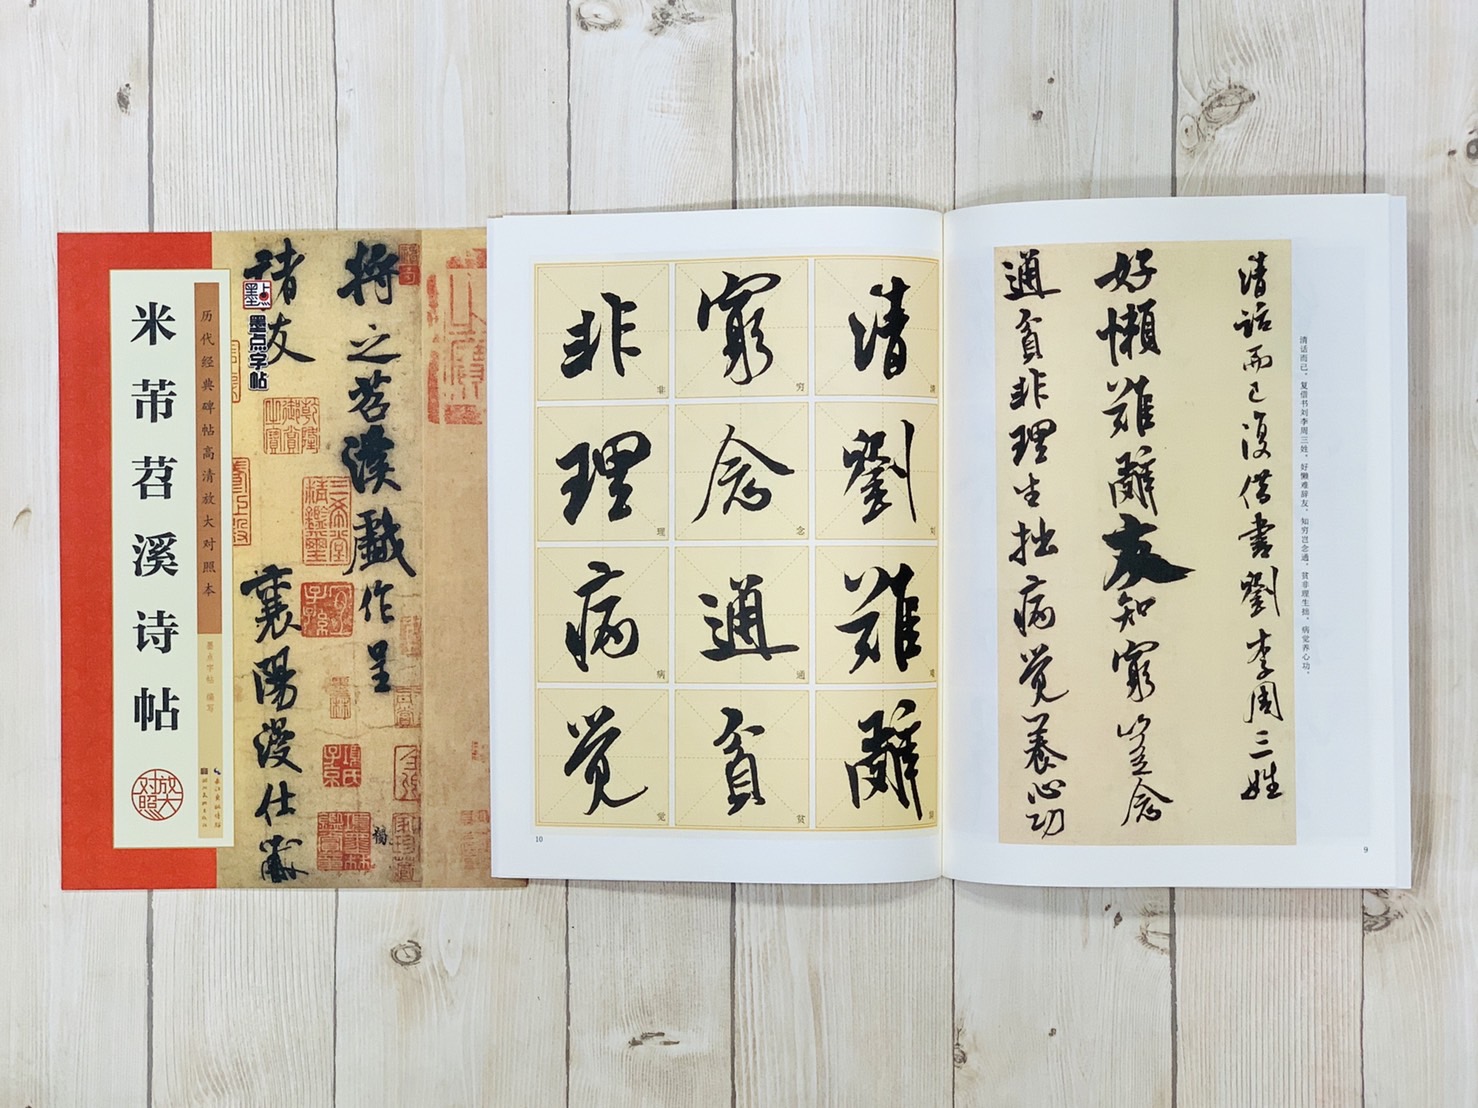 米芾苕溪诗帖
历代经典碑帖高清放大对照本
墨点字帖 编写
放大对照
墨点字帖
将之苕溪戏作呈
诸友
襄阳漫仕黻
清
劉
難
辭
窮
念
通
貧
非
理
病
覺
清
刘
难
辞
穷
念
通
贫
非
理
病
觉
10
清话而已復借書劉李周三姓
好懶難辭友知窮豈念
通貧非理生拙病覺養心功
清话而已，复借书刘李周三姓。好懒难辞友，知穷岂念通。贫非理生拙，病觉养心功。
9